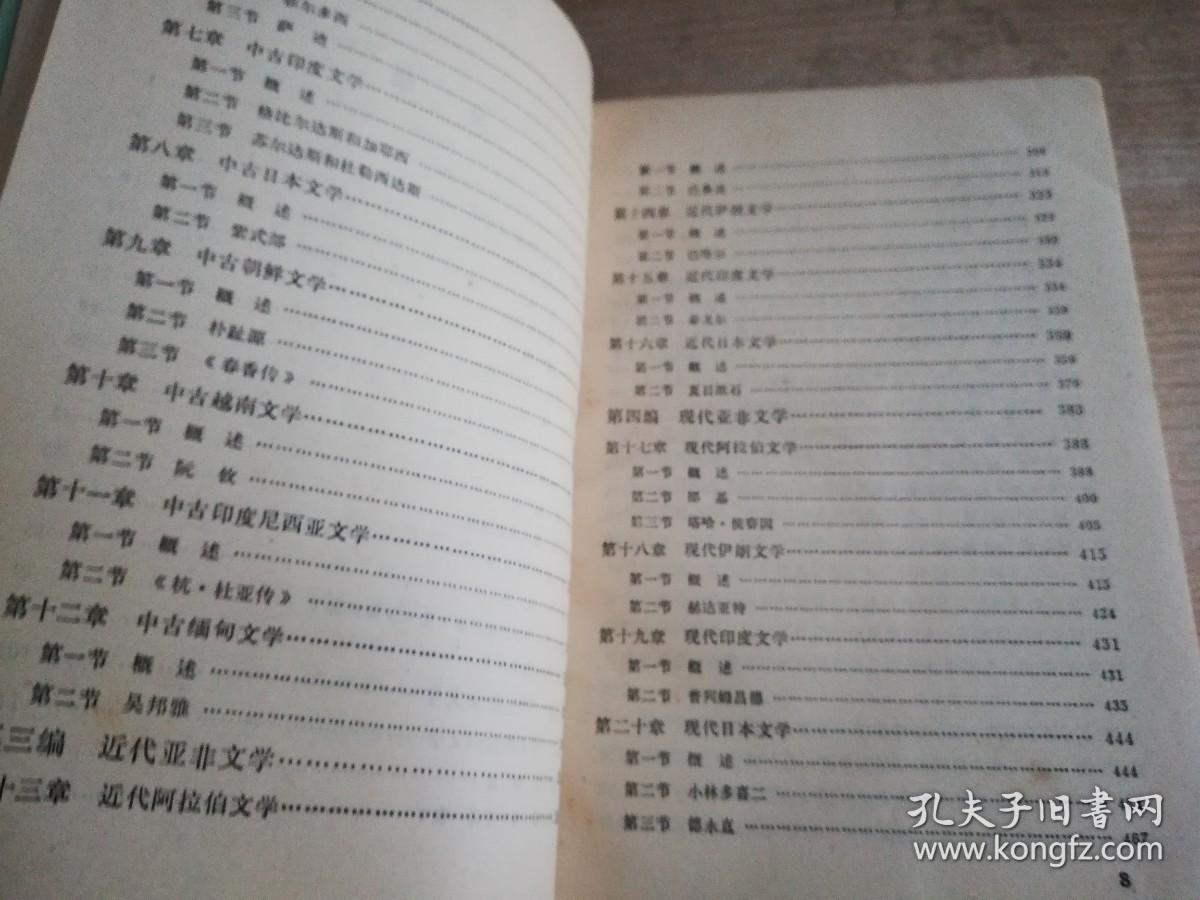 菲尔多西
第三节 萨迪
第七章 中古印度文学
第一节 概述
第二节 格比尔达斯和加耶西
第三节 苏尔达斯和杜勒西达斯
第八章 中古日本文学
第一节 概述
第二节 紫式部
第九章 中古朝鲜文学
第一节 概述
第二节 朴趾源
第三节 《春香传》
第十章 中古越南文学
第一节 概述
第二节 阮攸
第十一章 中古印度尼西亚文学
第一节 概述
第二节 《杭·杜亚传》
第十二章 中古缅甸文学
第一节 概述
第二节 吴邦雅
三编 近代亚非文学
十三章 近代阿拉伯文学
第一节 概述
第二节
第十四章 近代伊朗文学 323
第一节 概述
第二节
第十五章 近代印度文学 334
第一节 概述 334
第二节 泰戈尔 339
第十六章 近代日本文学 359
第一节 概述 359
第二节 夏目漱石 370
第四编 现代亚非文学 383
第十七章 现代阿拉伯文学 388
第一节 概述 388
第二节 邵基 400
第三节 塔哈·侯赛因 405
第十八章 现代伊朗文学 415
第一节 概述 415
第二节 赫达亚特 424
第十九章 现代印度文学 431
第一节 概述 431
第二节 普列姆昌德 435
第二十章 现代日本文学 444
第一节 概述 444
第二节 小林多喜二
第三节 德永直 467
8
孔夫子旧书网
www.kongfz.com